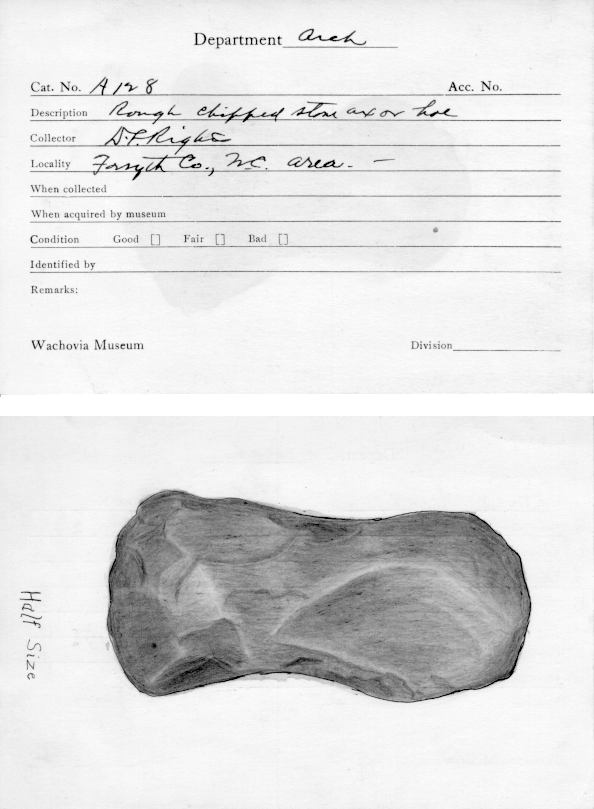 Department Arch
Cat. No. A128 Acc. No.
Description Rough chipped stone ax or hoe
Collector D.F. Rights
Locality Forsyth Co., N.C. area. —
When collected
When acquired by museum
Condition Good [] Fair [] Bad []
Identified by
Remarks:
Wachovia Museum Division
Half Size